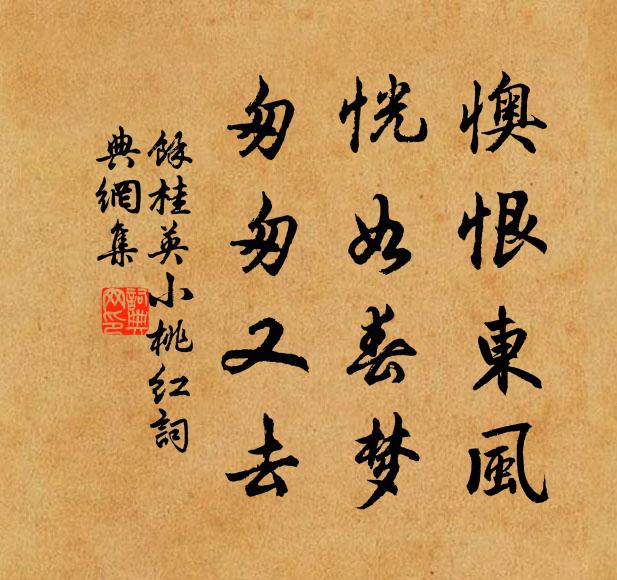 懊恨東風
恍如春梦
匆匆又去
餘桂英小桃红詞
典網集
詞典网印